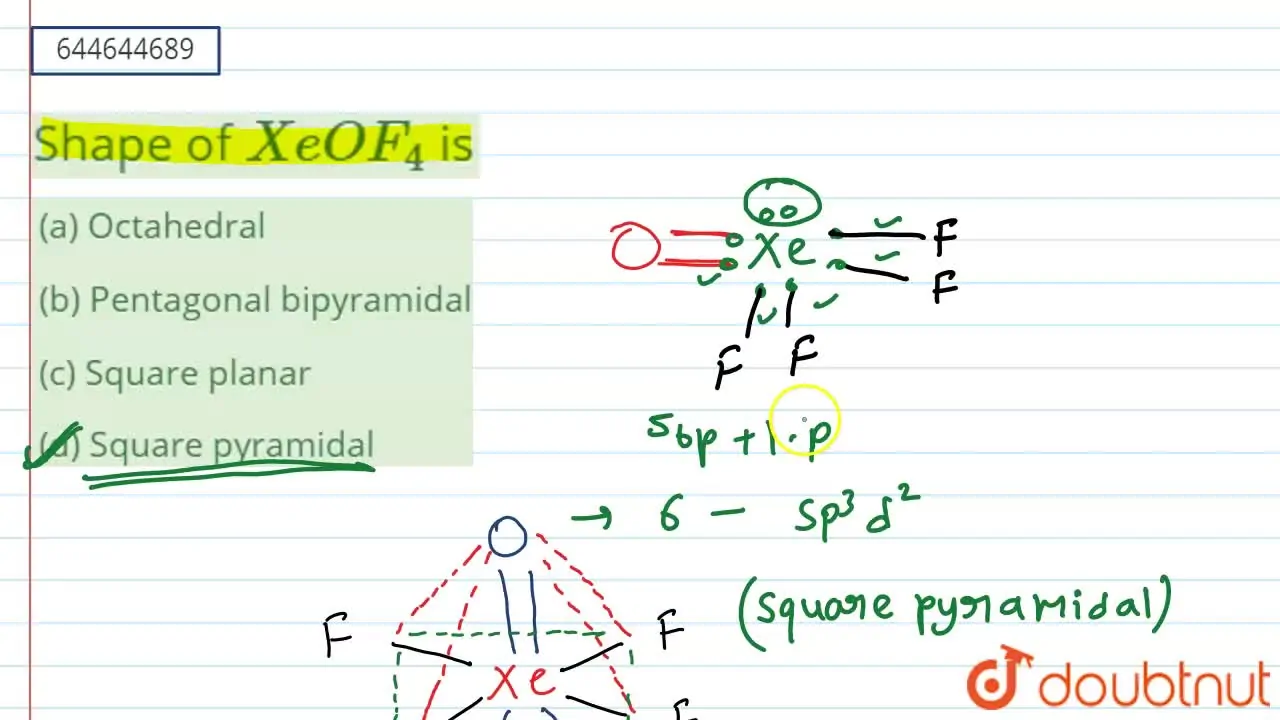 644644689
Shape of XeOF₄ is
(a) Octahedral
(b) Pentagonal bipyramidal
(c) Square planar
(d) Square pyramidal
O Xe F
F
F F
5bp + l.p
→ 6 - sp³d²
(square pyramidal)
O
F F
Xe
F
doubtnut